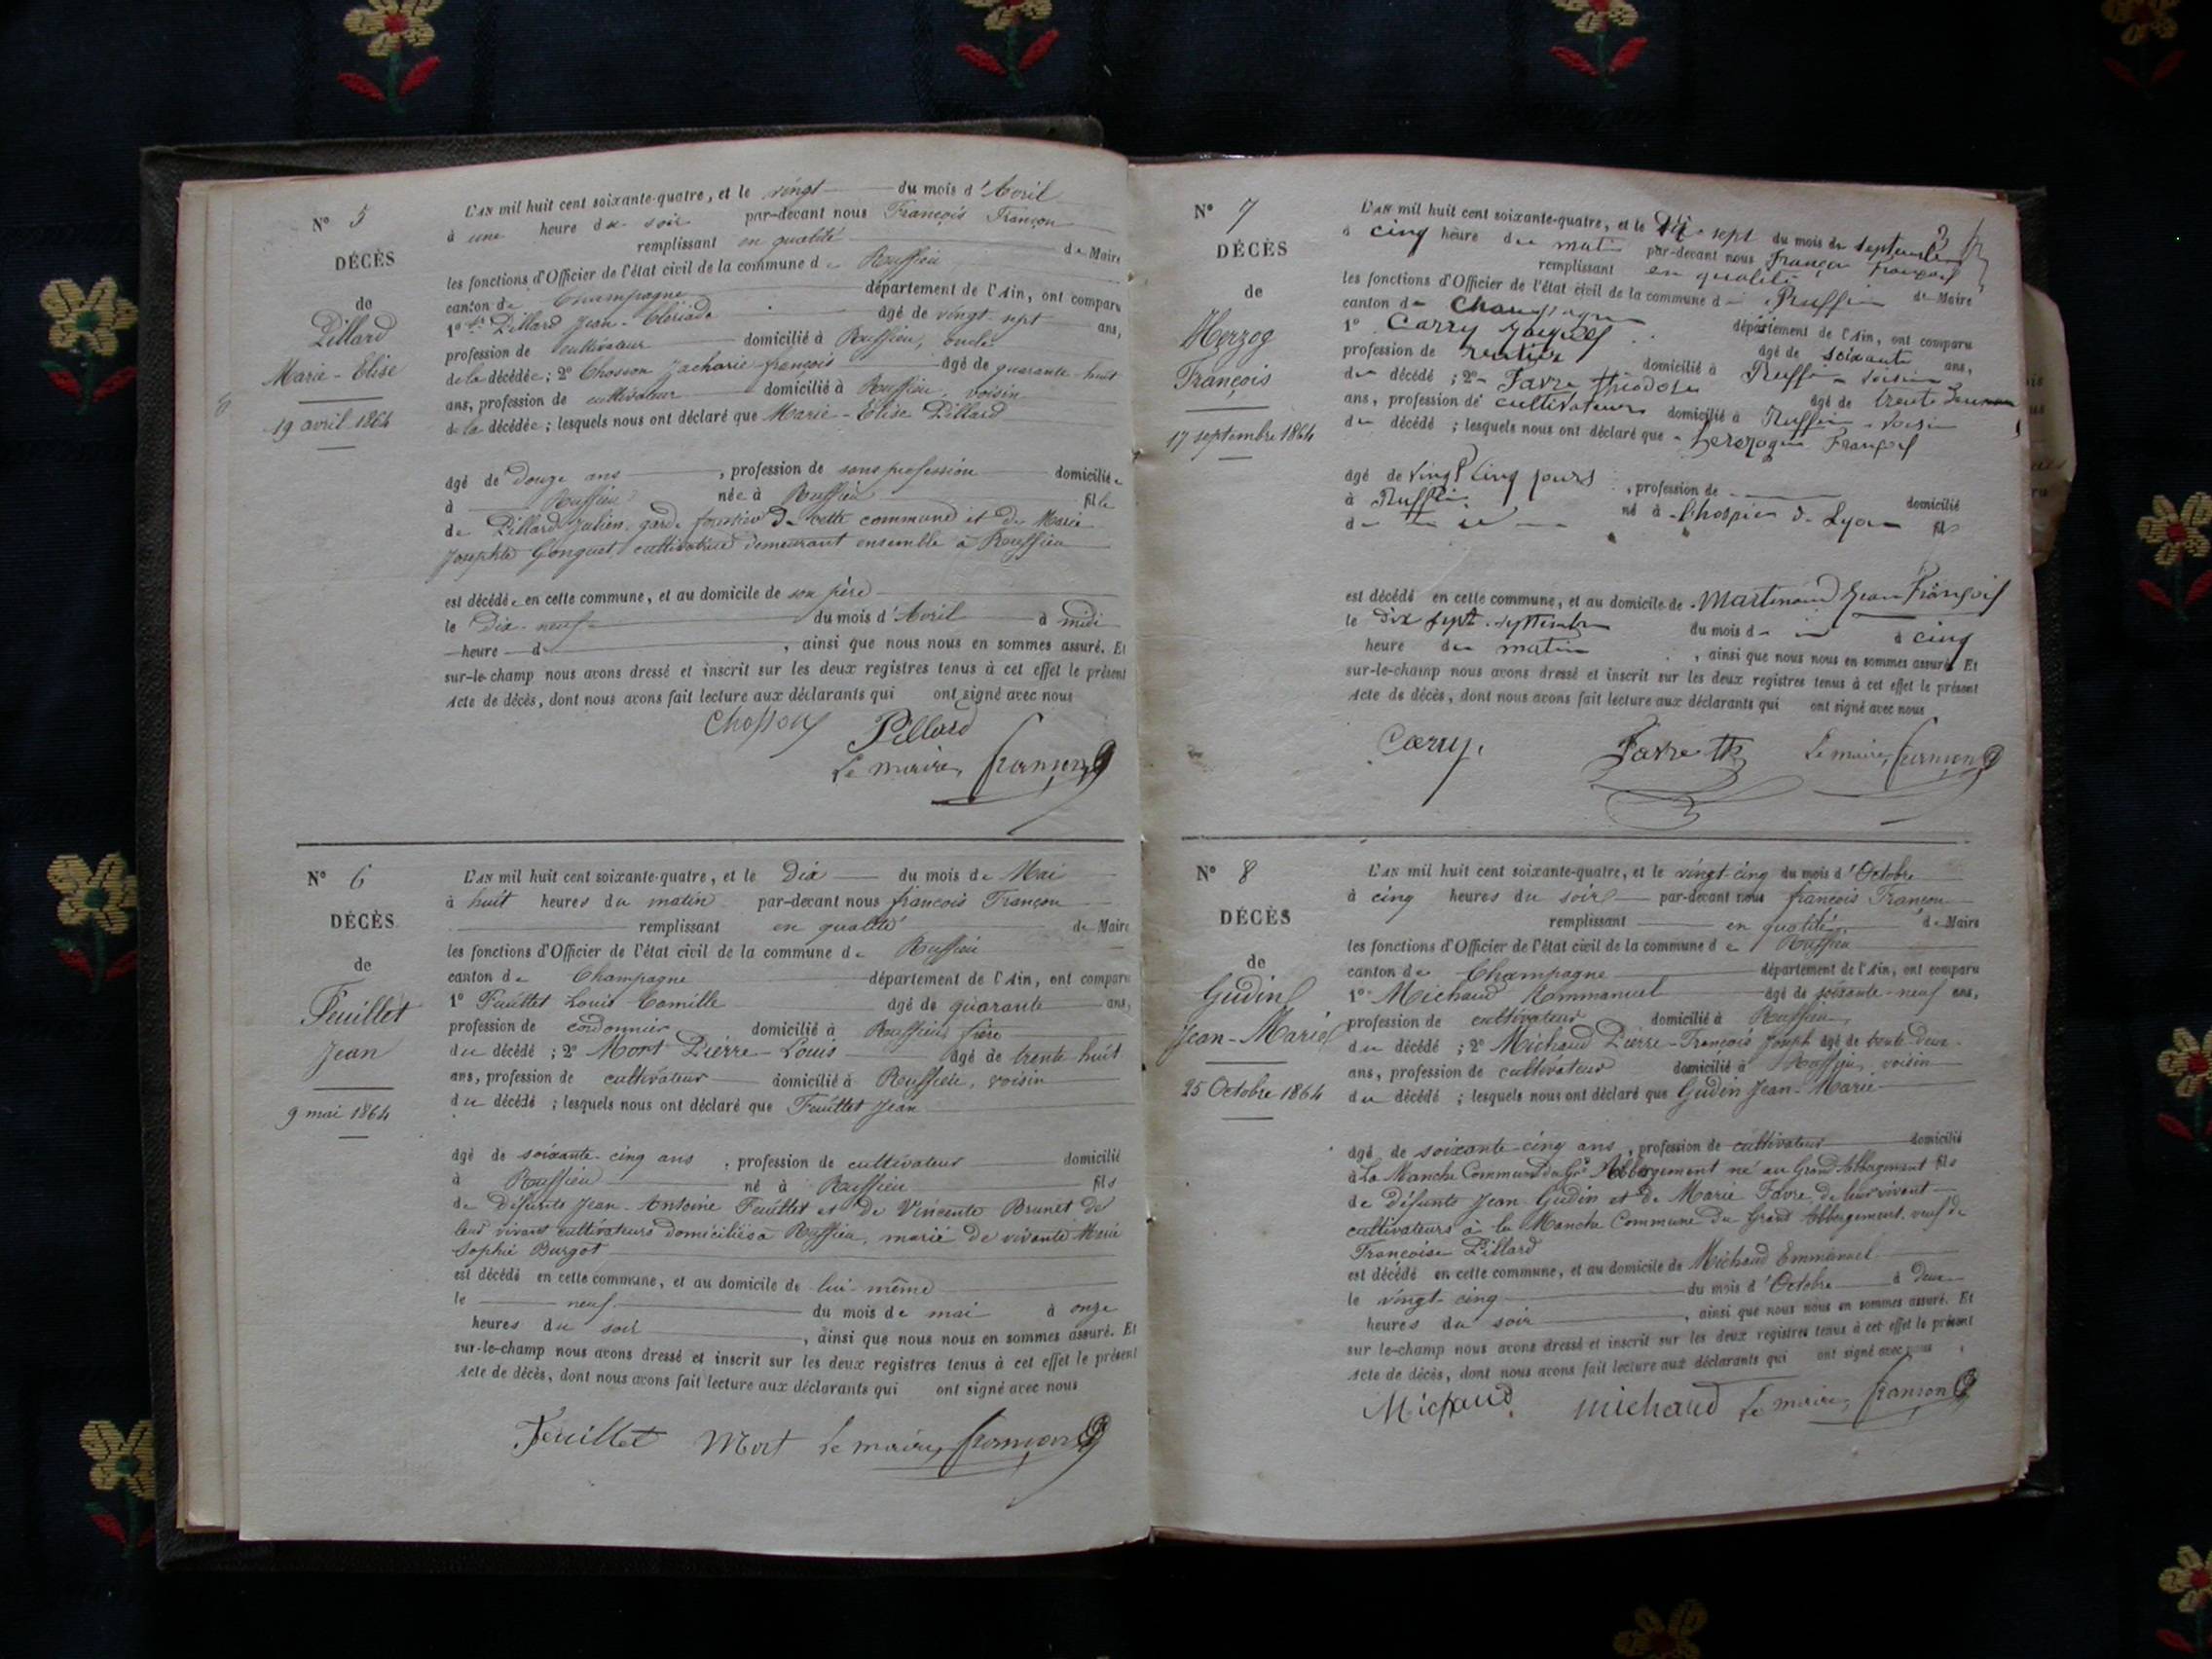 N° 5
DÉCÈS
de
Pillard
Marie-Elise
19 avril 1864
L'AN mil huit cent soixante-quatre, et le vingt du mois d'Avril
à une heure du soir par-devant nous François Françon
remplissant en qualité de Maire
les fonctions d'Officier de l'état civil de la commune de Ruffieu
canton de Champagne département de l'Ain, ont comparu
1° Pillard Jean- âgé de vingt-sept ans,
profession de cultivateur domicilié à Ruffieu, oncle
de la décédée ; 2° Chosson Zacharie françois âgé de quarante-huit
ans, profession de cultivateur domicilié à Ruffieu, voisin
de la décédée ; lesquels nous ont déclaré que Marie-Elise Pillard
âgé de douze ans , profession de sans profession domiciliée
à Ruffieu née à Ruffieu fille
de Pillard Julien, garde forestier de cette commune et de Marie
Josephte Gonguet, cultivatrice demeurant ensemble à Ruffieu
est décédée en cette commune, et au domicile de son père
le Dix-neuf du mois d'Avril à midi
heure d , ainsi que nous nous en sommes assuré. Et
sur-le-champ nous avons dressé et inscrit sur les deux registres tenus à cet effet le présent
Acte de décès, dont nous avons fait lecture aux déclarants qui ont signé avec nous
Chosson Pillard
Le maire, françon
N° 6
DÉCÈS
de
Feuillet
Jean
9 mai 1864
L'AN mil huit cent soixante-quatre, et le Dix du mois de Mai
à huit heures du matin par-devant nous françois Françon
remplissant en qualité de Maire
les fonctions d'Officier de l'état civil de la commune de Ruffieu
canton de Champagne département de l'Ain, ont comparu
1° Feuillet Louis Camille âgé de quarante ans,
profession de cordonnier domicilié à Ruffieu, frère
du décédé ; 2° Mort Pierre-Louis âgé de trente-huit
ans, profession de cultivateur domicilié à Ruffieu, voisin
du décédé ; lesquels nous ont déclaré que Feuillet Jean
âgé de soixante-cinq ans , profession de cultivateur domicilié
à Ruffieu né à Ruffieu fils
de Défunts Jean-Antoine Feuillet et de Vincente Brunet de
leur vivant cultivateurs domiciliés à Ruffieu, marié de vivante Marie
Sophie Burgot
est décédé en cette commune, et au domicile de lui-même
le neuf du mois de mai à onze
heures du soir , ainsi que nous nous en sommes assuré. Et
sur-le-champ nous avons dressé et inscrit sur les deux registres tenus à cet effet le présent
Acte de décès, dont nous avons fait lecture aux déclarants qui ont signé avec nous
Feuillet Mort Le maire, françon
N° 7
DÉCÈS
de
Herzog
François
17 septembre 1864
3
L'AN mil huit cent soixante-quatre, et le Dix sept du mois de septembre
à cinq heure du matin par-devant nous françois françon
remplissant en qualité de Maire
les fonctions d'Officier de l'état civil de la commune d Ruffieu
canton de Champagne département de l'Ain, ont comparu
1° Carry Jacques âgé de soixante ans,
profession de rentier domicilié à Ruffieu voisin
du décédé ; 2° Favre théodore âgé de trente
ans, profession de cultivateur domicilié à Ruffieu voisin
du décédé ; lesquels nous ont déclaré que François
âgé de vingt cinq jours , profession de domicilié
à Ruffieu né à l'hospice de Lyon fils
d
est décédé en cette commune, et au domicile de Martinand Jean François
le dix sept septembre du mois d à cinq
heure du matin , ainsi que nous nous en sommes assuré. Et
sur-le-champ nous avons dressé et inscrit sur les deux registres tenus à cet effet le présent
Acte de décès, dont nous avons fait lecture aux déclarants qui ont signé avec nous
Carry Favre th Le maire, françon
N° 8
DÉCÈS
de
Gudin
Jean-Marie
25 Octobre 1864
L'AN mil huit cent soixante-quatre, et le vingt-cinq du mois d'Octobre
à cinq heures du soir par-devant nous françois Françon
remplissant en qualité de Maire
les fonctions d'Officier de l'état civil de la commune de Ruffieu
canton de Champagne département de l'Ain, ont comparu
1° Michaud Emmanuel âgé de soixante-neuf ans,
profession de cultivateur domicilié à Ruffieu,
du décédé ; 2° Michaud Pierre-François Joseph âgé de trente-deux
ans, profession de cultivateur domicilié à Ruffieu, voisin
du décédé ; lesquels nous ont déclaré que Gudin Jean-Marie
âgé de soixante-cinq ans , profession de cultivateur domicilié
à La Manche Commune du Gd Abbergement né au Grand Abbergement fils
de Défunts Jean Gudin et de Marie Favre, de leur vivant
cultivateurs à la Manche Commune du Grand Abbergement, veuf de
Françoise Pillard
est décédé en cette commune, et au domicile de Michaud Emmanuel
le vingt-cinq du mois d'Octobre à Deux
heures du soir , ainsi que nous nous en sommes assuré. Et
sur le-champ nous avons dressé et inscrit sur les deux registres tenus à cet effet le présent
Acte de décès, dont nous avons fait lecture aux déclarants qui ont signé avec nous
Michaud michaud Le maire, françon